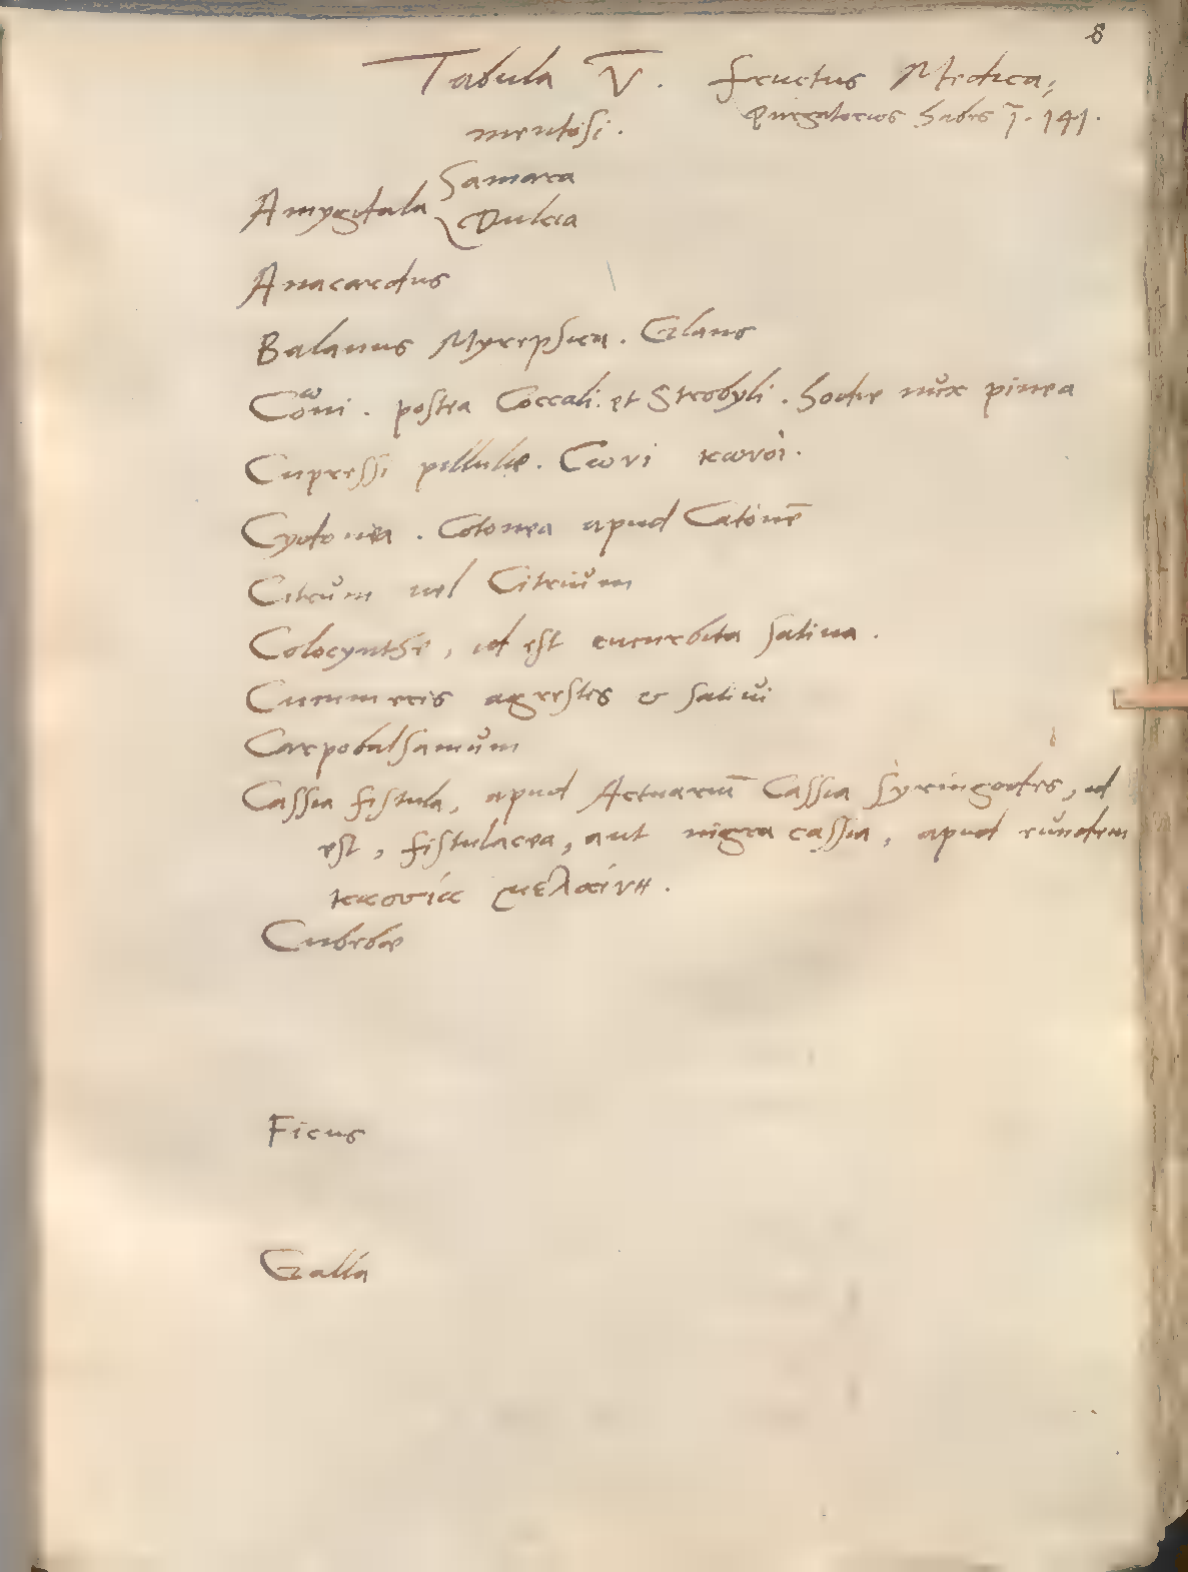 8
Tabula V. fructus Medica,
mentosi. Purgatorios habes
Amygdala { amara
Dulcia
Anacardus
Balanus Myrepsica. Glans
Cωni. postea Coccali. et Strobyli. hodie nux pinea
Cupressi pillulæ. Cωνι κωνοι.
Cydonea. Cotonea apud Catonē
Citrum uel Citrium
Colocynthe, id est cucurbita satiua.
Cucumeris agrestes & satiui
Carpobalsamum
Cassia fistula, apud Actuariū Cassia Syringodes, id
est, fistulacea, aut nigra cassia, apud eundem
κασσία μελαίνη.
Cubebæ
Ficus
Galla